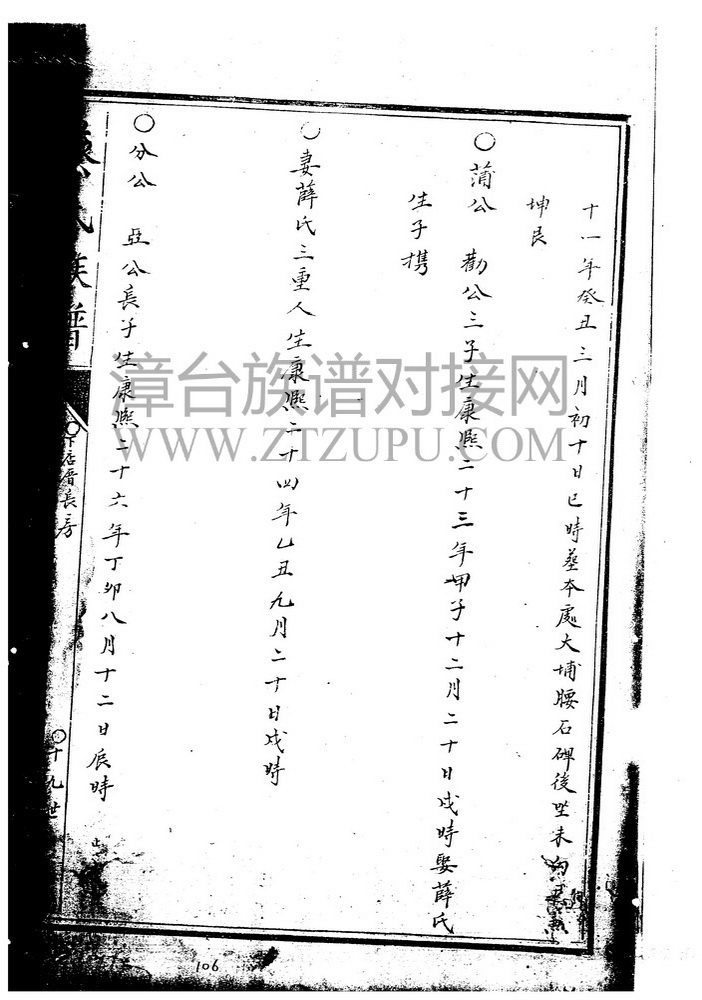 十一年癸丑三月初十日巳時葬本處大埔腰石碑後坐未向
坤艮
○蒲公 勸公三子生康熙二十三年甲子十二月二十日戌時娶薛氏
生子携
○妻薛氏三重人生康熙二十四年乙丑九月二十日戌時
○分公 亞公長子生康熙二十六年丁卯八月十二日辰時
氏族譜
○下店厝長房
○十九世
漳台族谱对接网
WWW.ZTZUPU.COM
106